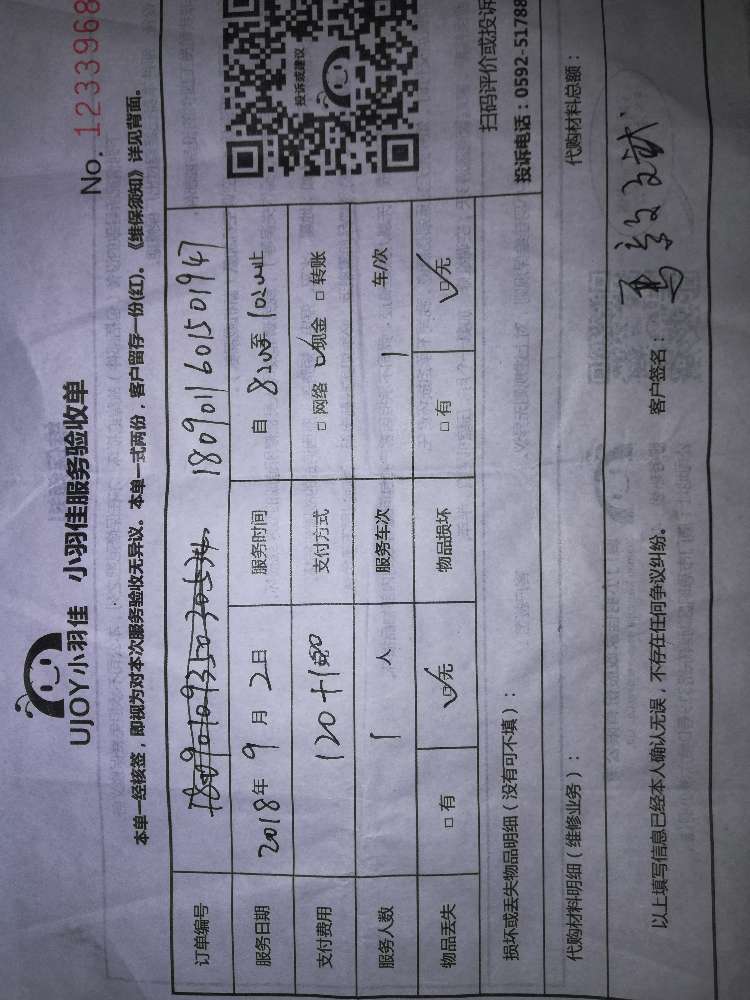 No. 1233968
UJOY小羽佳 小羽佳服务验收单
本单一经核签，即视为对本次服务验收无异议。本单一式两份，客户留存一份(红)。《维保须知》详见背面。
投诉或建议
扫码评价或投诉
投诉电话：0592-51788
订单编号 1809011601501947
服务日期 2018年 9 月 2 日 服务时间 自 8200至 1020止
支付费用 120+160 支付方式 □ 网络 ☑现金 □ 转账
服务人数 1 人 服务车次 1 车/次
物品丢失 □ 有 ☑无 物品损坏 □ 有 ☑无
损坏或丢失物品明细（没有可不填）：
代购材料明细（维修业务）： 代购材料总额：
以上填写信息已经本人确认无误，不存在任何争议纠纷。 客户签名：